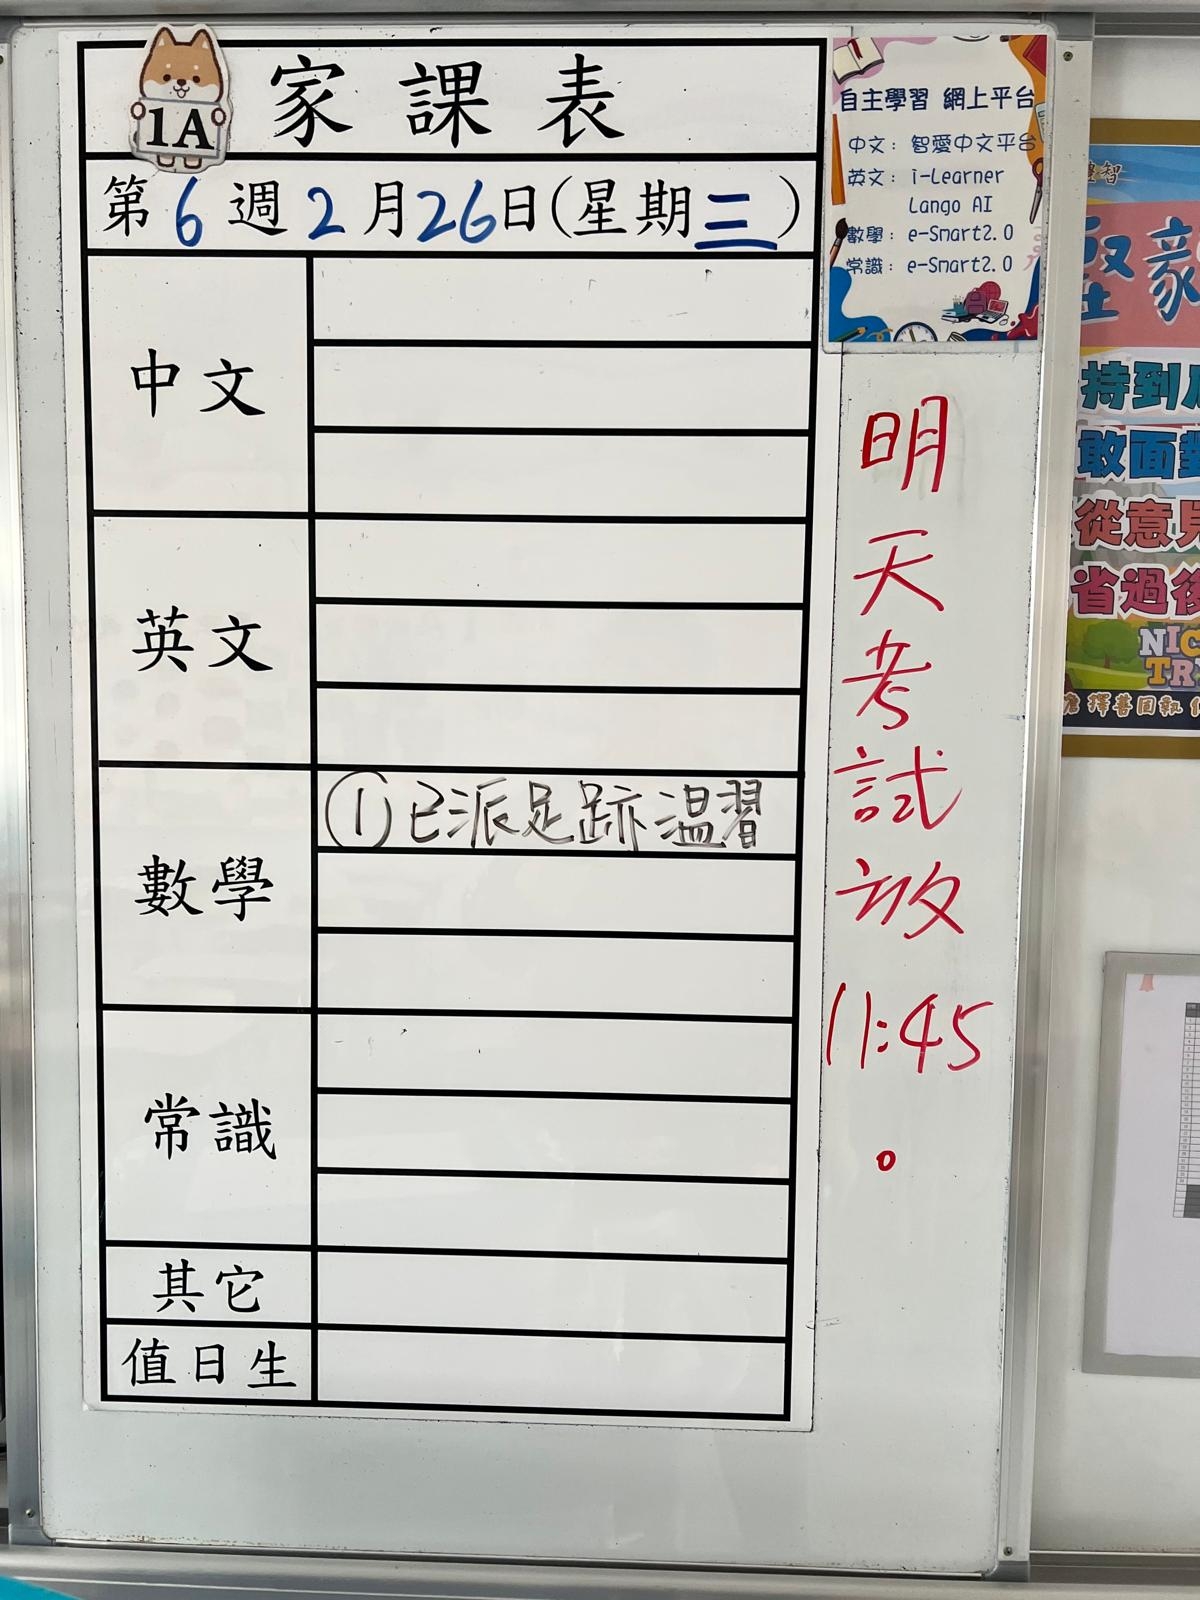 1A
家課表
第6週2月26日(星期三)
中文
英文
數學
①已派足跡溫習
常識
其它
值日生
自主學習 網上平台
中文：智愛中文平台
英文：i-Learner
Lango AI
數學：e-Smart2.0
常識：e-Smart2.0
明天考試放11:45。
持到
敢面對
從意見
省過後
NIC
TR
擇善固執